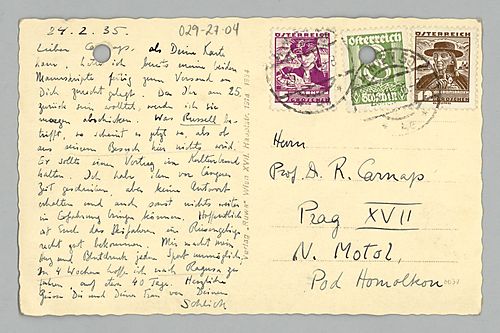 24.2.35.
029-27-04
Lieber Carnap, als Deine Karte
kam, hatte ich bereits meine beiden
Manuskripte fertig zum Versand an
Dich zurecht gelegt. Da Du am 25.
zurück sein wolltest, werde ich sie
morgen abschicken. Was Russell be-
trifft, so scheint es jetzt so, als ob
aus seinem Besuch hier nichts wird.
Er sollte einen Vortrag im Kulturbund
halten. Ich habe ihm vor längerer
Zeit geschrieben, aber keine Antwort
erhalten und auch sonst nichts weiter
in Erfahrung bringen können. Hoffentlich
ist Euch das Skifahren im Riesengebirge
recht gut bekommen. Mir macht mein
Herz und Blutdruck jeden Sport unmöglich.
In 4 Wochen hoffe ich nach Ragusa zu
fahren, auf etwa 10 Tage. Herzliche
Grüsse Dir und Deiner Frau von Deinem
Schlick
Wien XVII, Hauptstr.
ÖSTERREICH
5 GROSCHEN
ÖSTERREICH
ÖSTERREICH
12 GROSCHEN
Herrn
Prof. Dr. R. Carnap
Prag XVII
N. Motol,
Pod Homolkou